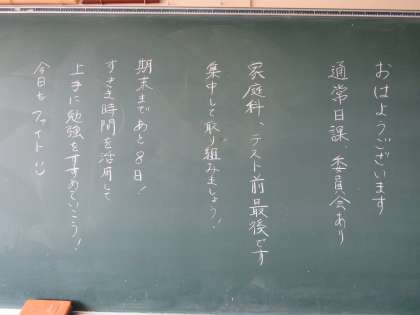 おはようございます
通常日課、委員会あり
家庭科、テスト前最後です
集中して取り組みましょう!
期末まであと8日!
すきま時間を活用して
上手に勉強をすすめていこう!
今日もファイト